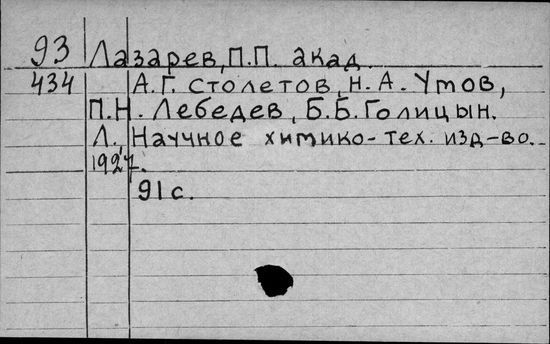 93 Лазарев, П.П. акад.
434 А.Г. Столетов, Н.А. Умов,
П.Н. Лебедев, Б.Б. Голицын.
Л., Научное химико-тех. изд-во.
1927.
91 с.